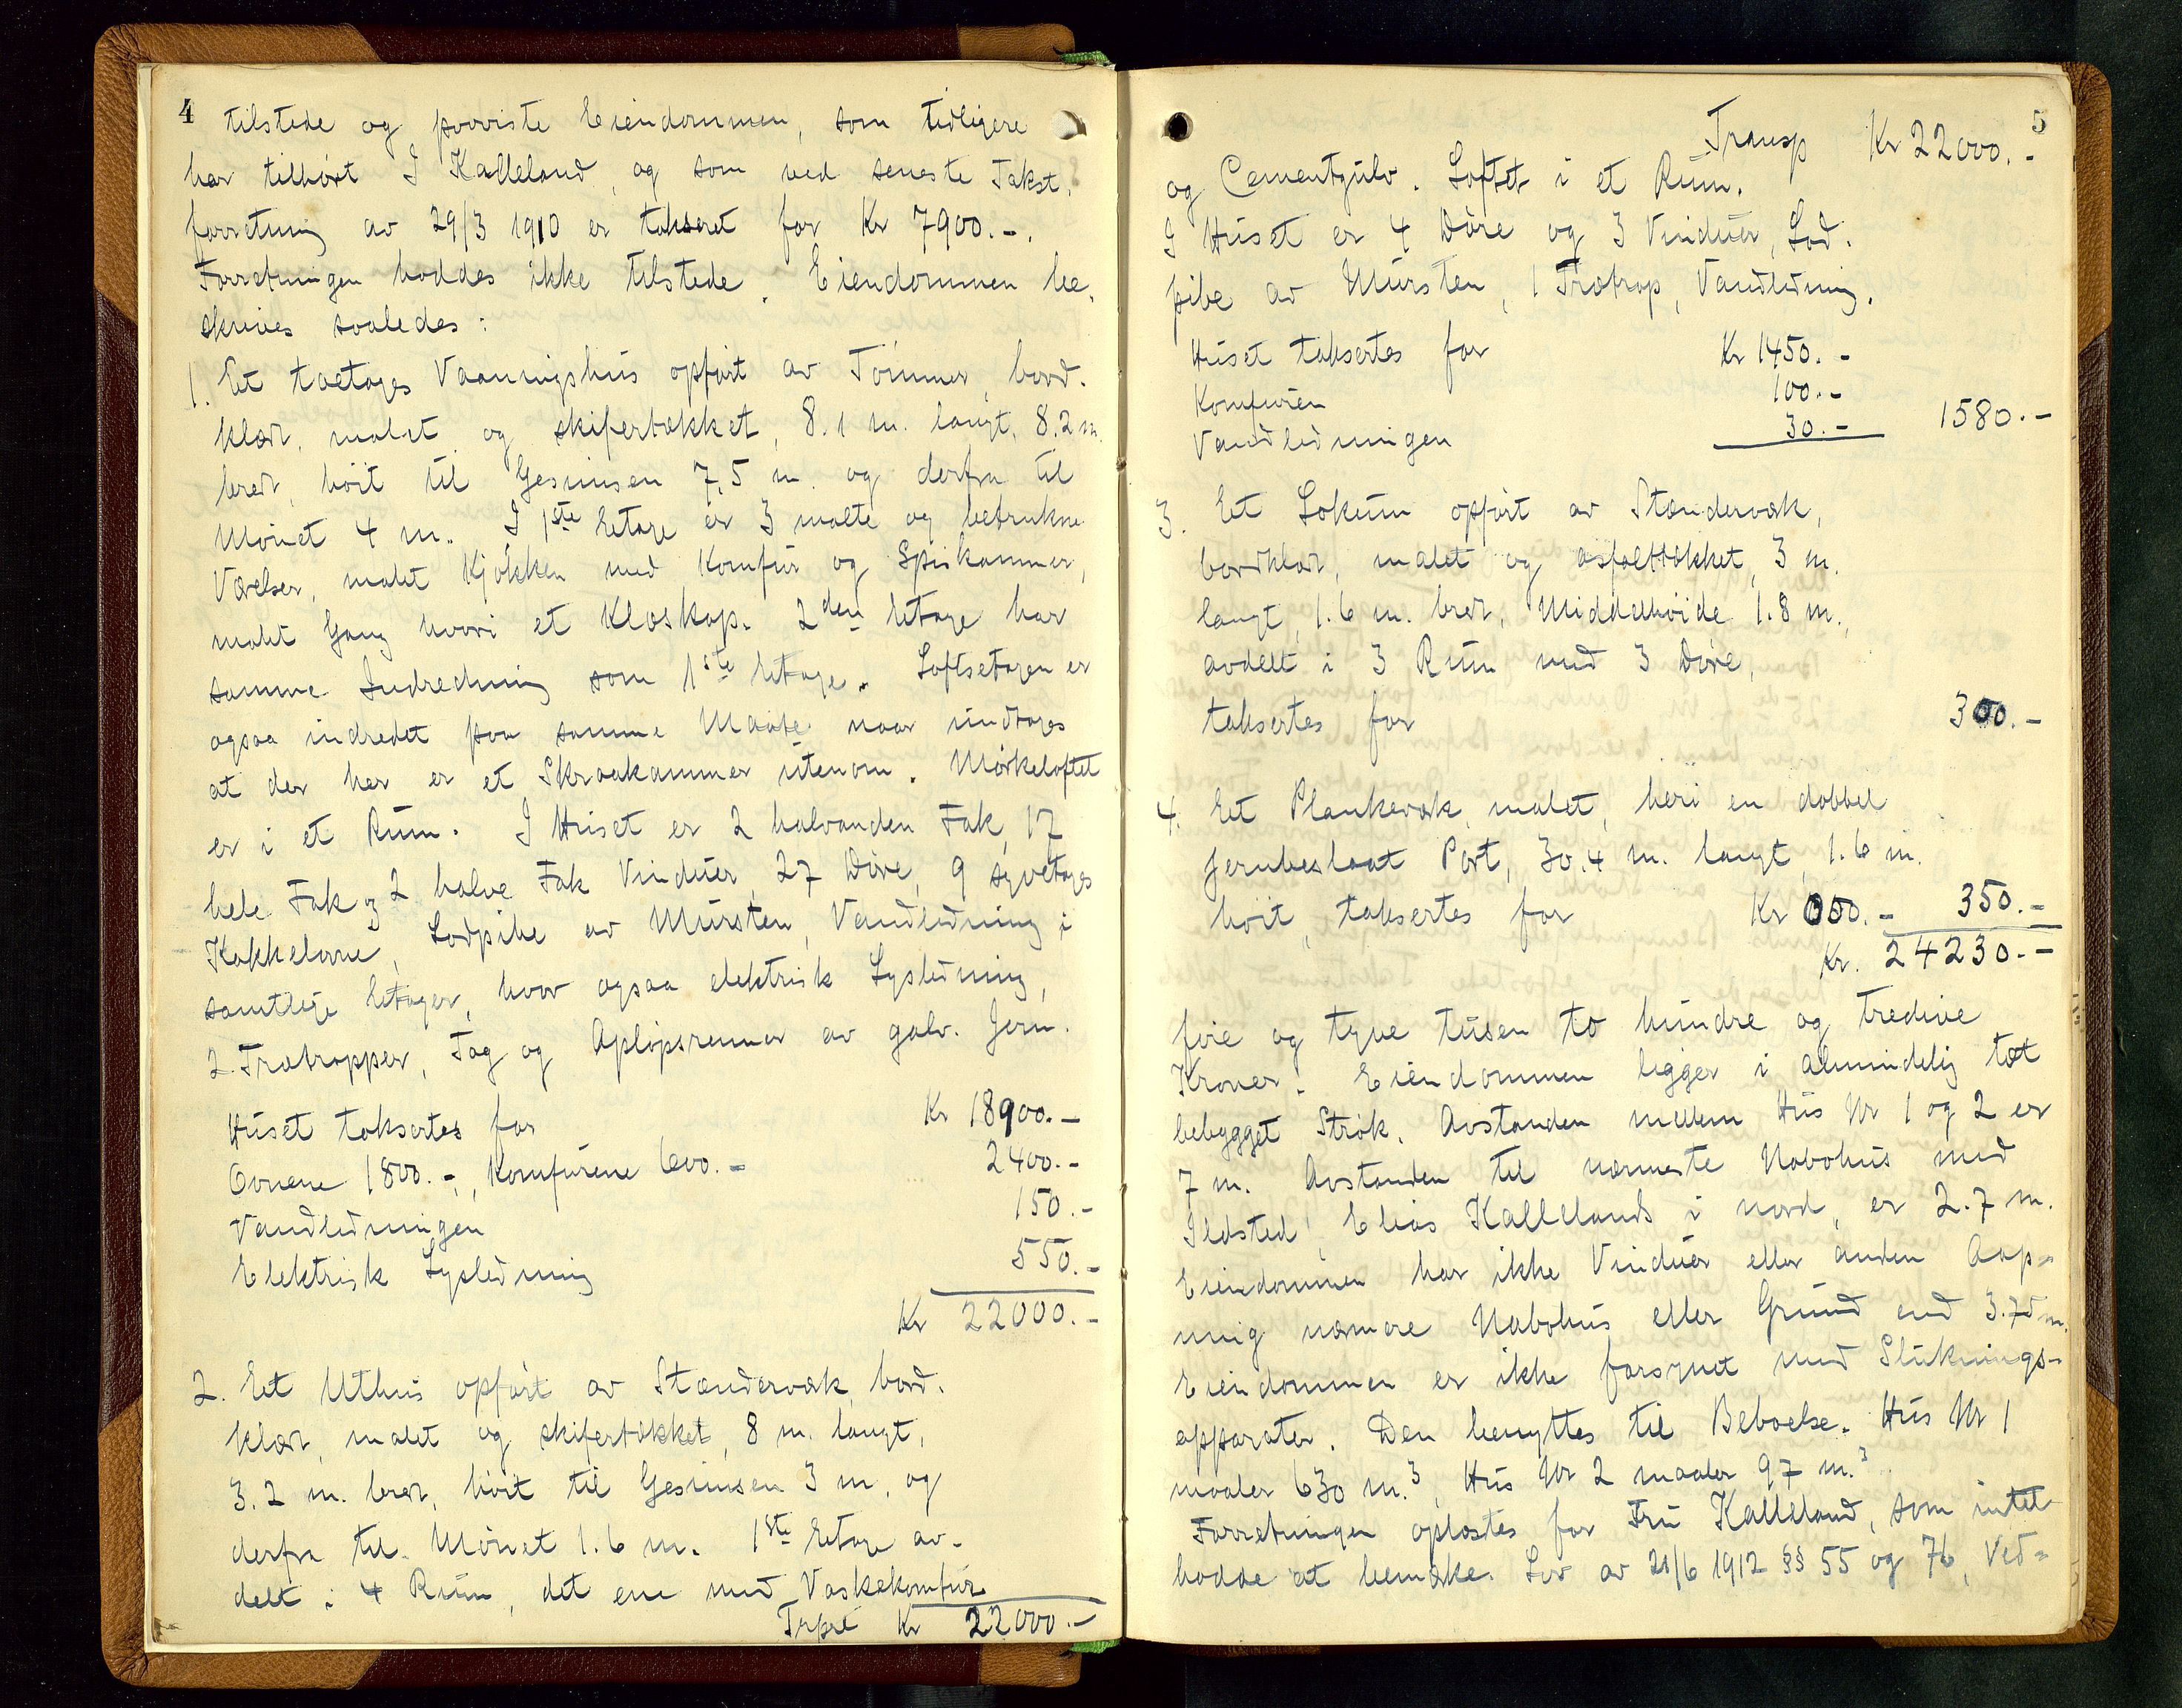 4
tilstede og paaviste Eiendommen, som tidligere
har tilhørt I Kalleland, og som ved seneste Takst,
forretning av 29/3 1910 er taksert for Kr 7900.-.
Forretningen haddes ikke tilstede. Eiendommen be,
skrives saaledes:
1. Et toetages Vaaningshus opført av Tømmer, bord.
klædt, malet og skifertækket, 8.1 m. langt, 8.2 m.
bredt, høit til Gesimsen 7,5 m. og derfra til
Mønet 4 m. I 1ste Etage er 3 malte og betrukne
Værelser, malet Kjøkken med Komfur og Spiskammer,
malt Gang hvori et Klæskap. 2den Etage har
samme Indredning som 1ste Etage. Loftsetagen er
ogsaa indredet paa samme Maate naar undtages
at der her er et Skraakammer utenom. Mørkeloftet
er i et Rum. I Huset er 2 halvanden Fak, 17
hele Fak og 2 halve Fak Vinduer, 27 Døre, 9 syvetages
Kakkelovne, Lodpibe av Mursten, Vandledning i
samtlige Etager, hvor ogsaa elektrisk Lysledning,
2 Trætrapper, Tag og Apløpsrenner av galv. Jern.
Huset taksertes for Kr 18900.-
Ovnene 1800.-, Komfurene 600.- 2400.-
Vandledningen 150.-
Elektrisk Lysledning 550.-
Kr 22000.-
2. Et Uthus opført av Stænderværk, bord.
klædt, malet og skifertækket, 8 m. langt,
3.2 m. bredt, høit til Gesimsen 3 m. og
derfra til Mønet 1.6 m. 1ste Etage av-
delt i 4 Rum, det ene med Vaskekomfur
Trpst Kr 22000.-
5
Transp Kr 22000.-
og Cementgulv. Loftet i et Rum.
I Huset er 4 Døre og 3 Vinduer, Lod.
pibe av Mursten, 1 Trætrap, Vandledning.
Huset taksertes for Kr 1450.-
Komfuren 100.-
Vandledningen 30.- 1580.-
3. Et Lokum opført av Stænderværk,
bordklædt, malet og asfalttækket, 3 m.
langt, 1.6 m. bredt, Middelhøide 1.8 m.,
avdelt i 3 Rum med 3 Døre,
taksertes for 300.-
4. Et Plankeværk, malet, heri en dobbel
jernbeslaat Port, 30.4 m. langt, 1.6 m.
høit, taksertes for Kr 000.- 350.-
Kr. 24230.-
fire og tyve tusen to hundre og tredive
Kroner. Eiendommen ligger i almindelig tæt
bebygget Strøk. Avstanden mellem Hus Nr 1 og 2 er
7 m. Avstanden til nærmeste Nabohus med
Ildsted, Elias Kallelands i nord, er 2.7 m.
Eiendommen har ikke Vinduer eller anden Aap-
ning nærmere Nabohus eller Grund end 3.75 m.
Eiendommen er ikke forsynet med Sluknings-
apparater. Den benyttes til Beboelse. Hus Nr 1
maaler 630 m.³, Hus Nr 2 maaler 97 m.³
Forretningen oplæstes for Fru Kalleland, som intet
hadde at bemærke. Lov av 21/6 1912 §§ 55 og 76, Ved-